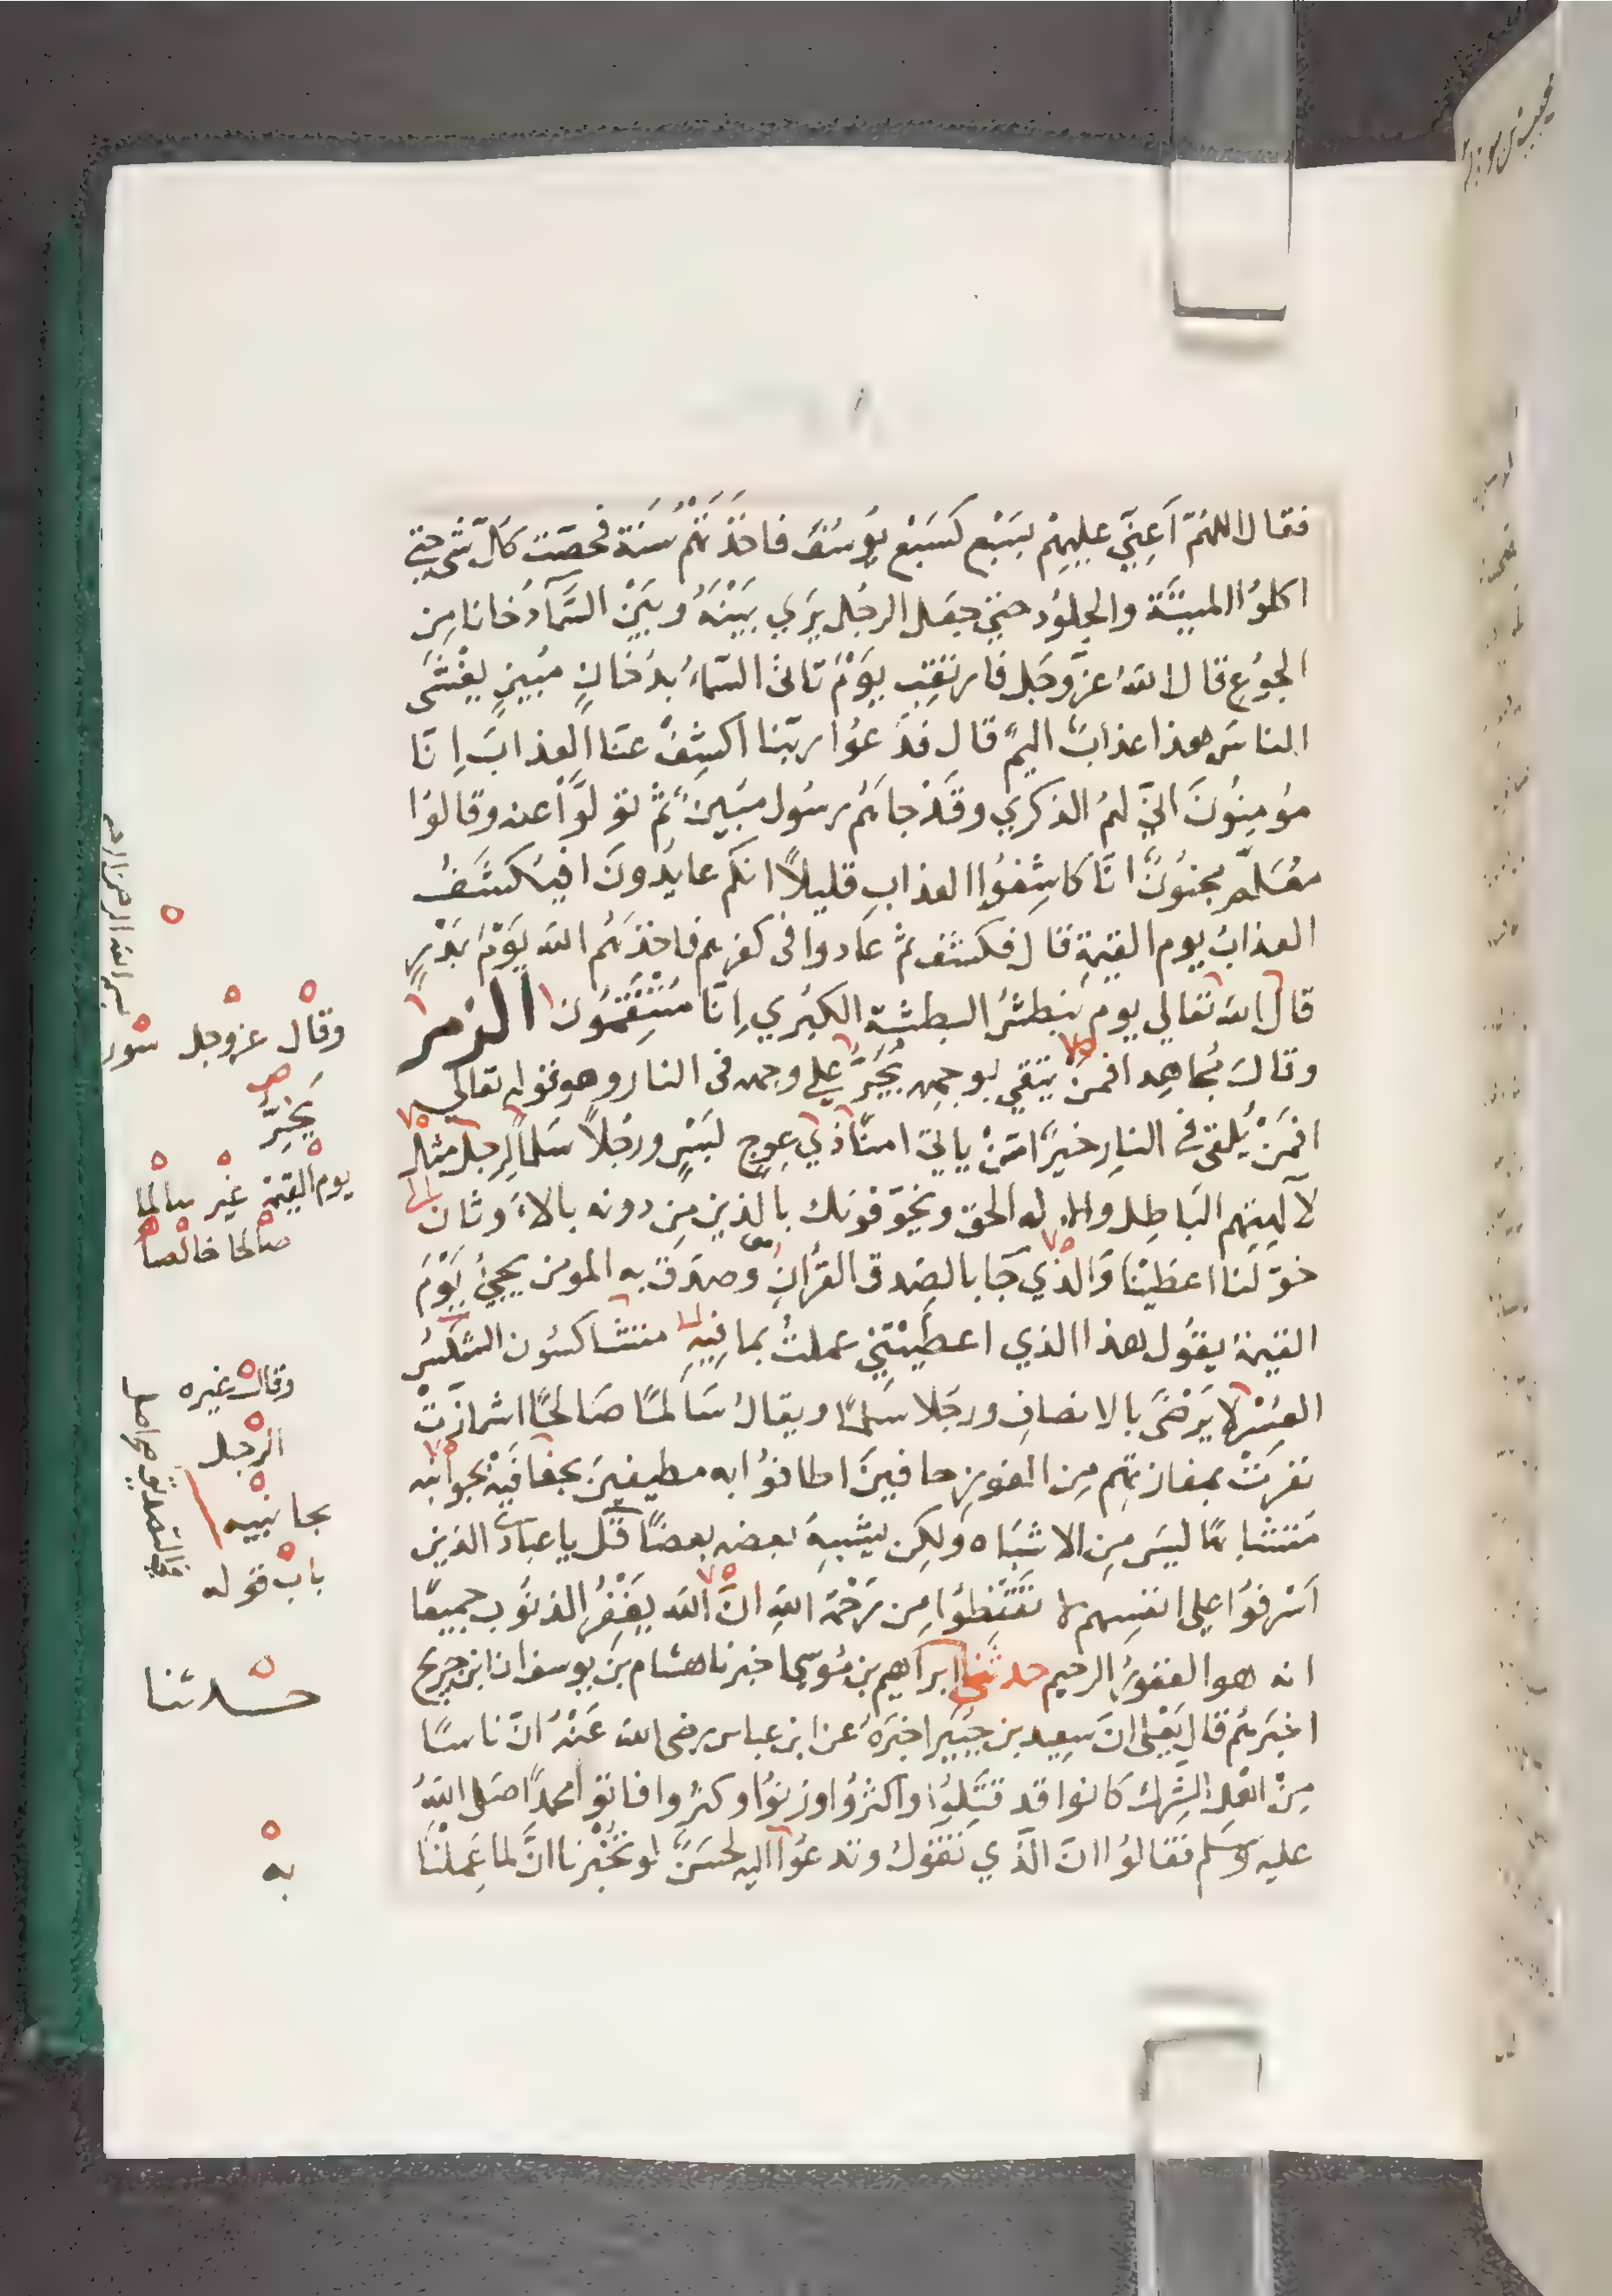 فقال اللهُمّ اَعِنِّي عليهِمْ بسَبْع كسَبْع يوُسُفَ فاخذَتهُمْ سَنَة فحصّت كلّ شيٍ حتي
اكلوُا الميتَة والجلوُد حتي جعل الرجُل يَرَي بَيْنَهُ وبَيْنَ السَّمآ دُخانا مِنِ
الجوُعِ قال اللهُ عزّوجَل فارتَقِبْ يوَْمَ تاتي السّماءُ بدُخانٍ مُبينٍ يغْشَى
الناسَ هذا عذابٌ اليمٌ قال فدَعَوُا ربّنا اكشِفْ عنا العذابَ اِنّا
موُمِنوُنَ انّي لهمُ الذكري وقَدْ جاءَهُم رسُول مبينٌ ثمّ تولّوْا عنه وقالوُا
مُعَلّم مجنوُنٌ انّا كاشِفوُا العذابِ قليلاً انكم عايدُونَ افيُكشَفُ
العذابُ يوم القيمةِ قال فكشف ثم عادوا في كفرهم فاخذَهُم الله يَوْمَ بَدْرٍ
قال الله تعالي يوم نبطشُ البطشة الكبْري اِنّا مُنْتَقِمُونَ الزمر
وقالَ مُجاهِد افمنْ يتقي بوجهِه يُجَرُّ علي وجهه في النار وهو قوله تعالي
افمَنْ يُلقى في النارِ خيرٌ امَنْ ياتي امنًا ذي عِوجٍ لبْسٍ ورجُلاً سَلماً لِرجل مثل
لآلهتِهم البَاطِل والاله الحق ويخوّفونك بالذين مِن دونه بالاوْثان
خوّلنا اعطَيْنا وَالذي جَا بالصِدق القرآنِ وصدّق به المومن يجيُ يَوْمَ
القيمة يقوُل هذا الذي اعطَيْتَني عملتُ بما فيهِ متشاكسُون الشّكسُ
العَسْر لا يَرْضَى بالانصافِ ورجُلا سلمًا ويقالُ سَالمًا صَالحًا اشمازّتْ
نفرَتْ بمفازتهم مِن الفوزِ حافينَ اطافوُا به مطيفينَ بحفافَيْه بجوانبه
مُتشابهًا ليسَ مِنِ الاشتباه ولكِن يشْبِهُ بعضه بعضًا قل يا عبادي الذين
اَسْرفوُا علي انفسِهم لا تقْنَطوُا مِن رَحْمَة اللهِ انّ اللهَ يَغْفِرُ الذنوُب جميعًا
انه هو الغفورُ الرحيم حدثني ابراهيم بن مُوسي اخبرنا هشام بن يوسف ان ابن جريج
اخبَرهُم قال يَعْلى انَ سعِيد بن جبَير اخبَرَهُ عن ابن عباس رضي الله عَنْهُ انّ ناسًا
مِنْ اهْلِ الشِرك كانوا قد قتلوُا واكثرُوا وزنوُا وكثرُوا فاتوا محمدًا صَلى اللهُ
عليه وسَلم فقالوُا ان الّذي تقوُلُ وتدعوُا اليه لحسَنٌ لو تخْبرنا انّ لما عَمِلْنا
بسم الله الرحمن الرحيم
وقال عزوجل سورة
يَخِرّ
يوم القيمة غير سالما
صالحا خالصا
وقال غيره
الرجل
بجانبيه
باب قوله
حدثنا
به